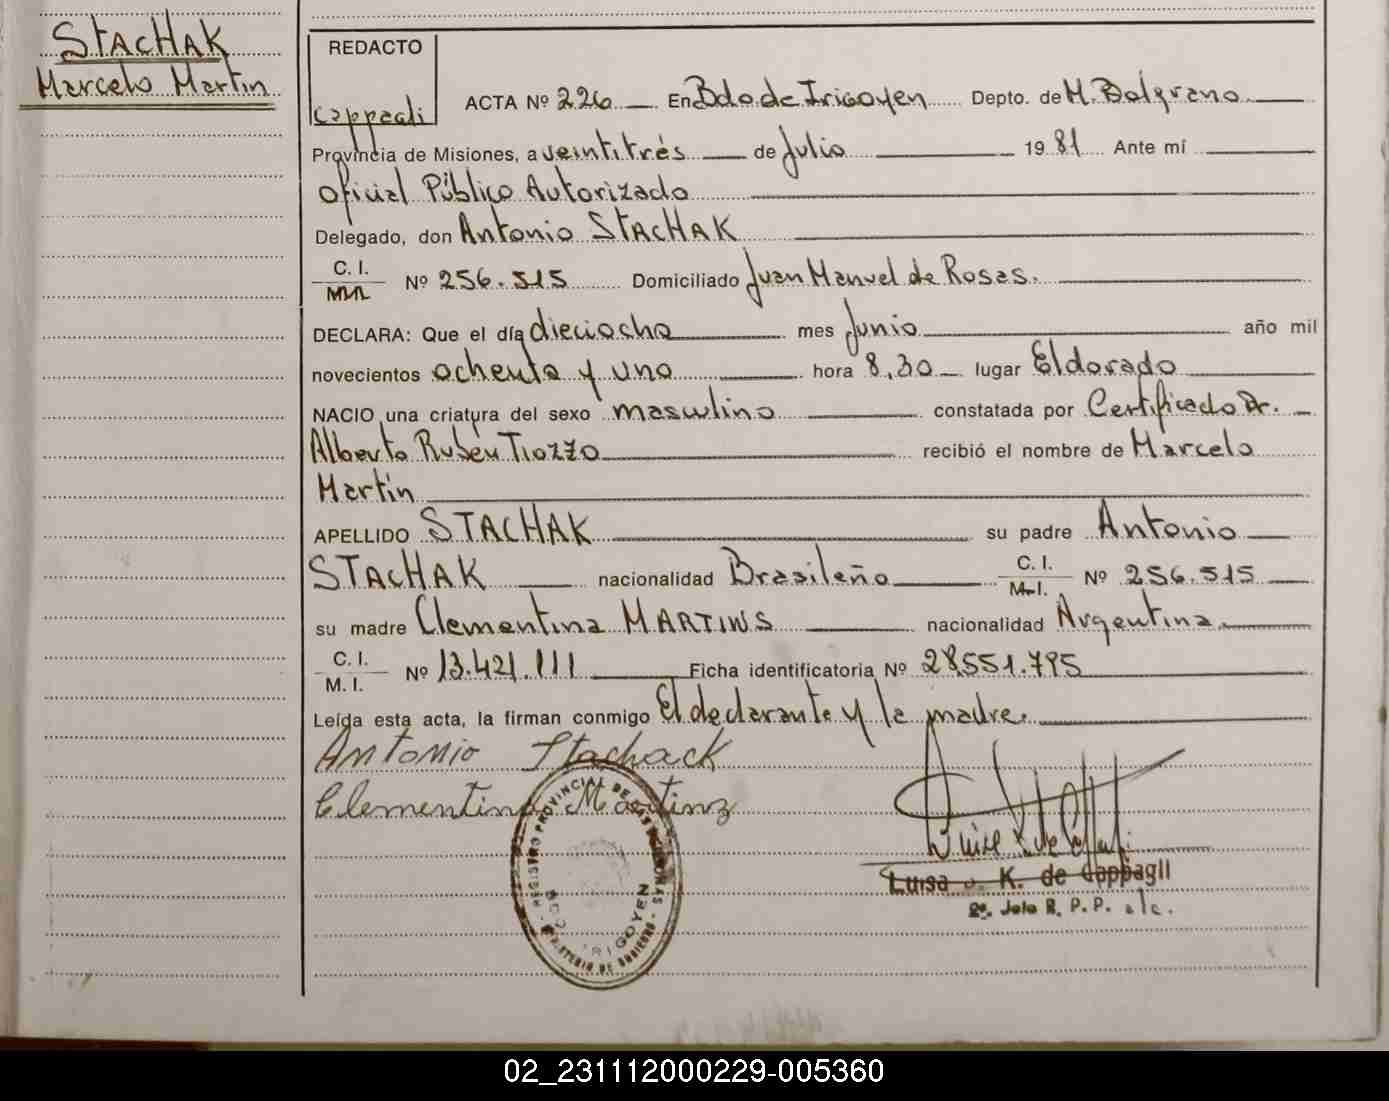 STACHAK
Marcelo Martin
REDACTO
Cappagli
ACTA Nº 226 En Bdo de Irigoyen Depto. de M. Belgrano
Provincia de Misiones, a veintitrés de Julio 19 81 Ante mí
Oficial Público Autorizado
Delegado, don Antonio STACHAK
C. I.
M. I. Nº 256.515 Domiciliado Juan Manuel de Rosas.
DECLARA: Que el día dieciocho mes Junio año mil
novecientos ochenta y uno hora 8,30 lugar Eldorado
NACIO una criatura del sexo masculino constatada por Certificado Dr.
Alberto Rubén Tiozzo recibió el nombre de Marcelo
Martín
APELLIDO STACHAK su padre Antonio
STACHAK nacionalidad Brasileño C. I.
M. I. Nº 256.515
su madre Clementina MARTINS nacionalidad Argentina
C. I.
M. I. Nº 13.421.111 Ficha identificatoria Nº 28.551.795
Leída esta acta, la firman conmigo El declarante y la madre.
Antonio Stachack
Clementina Martinz
REGISTRO PROVINCIAL DE LAS PERSONAS
MINISTERIO DE GOBIERNO
IRIGOYEN
Luisa K. de Cappagli
R. P. P.
02_231112000229-005360